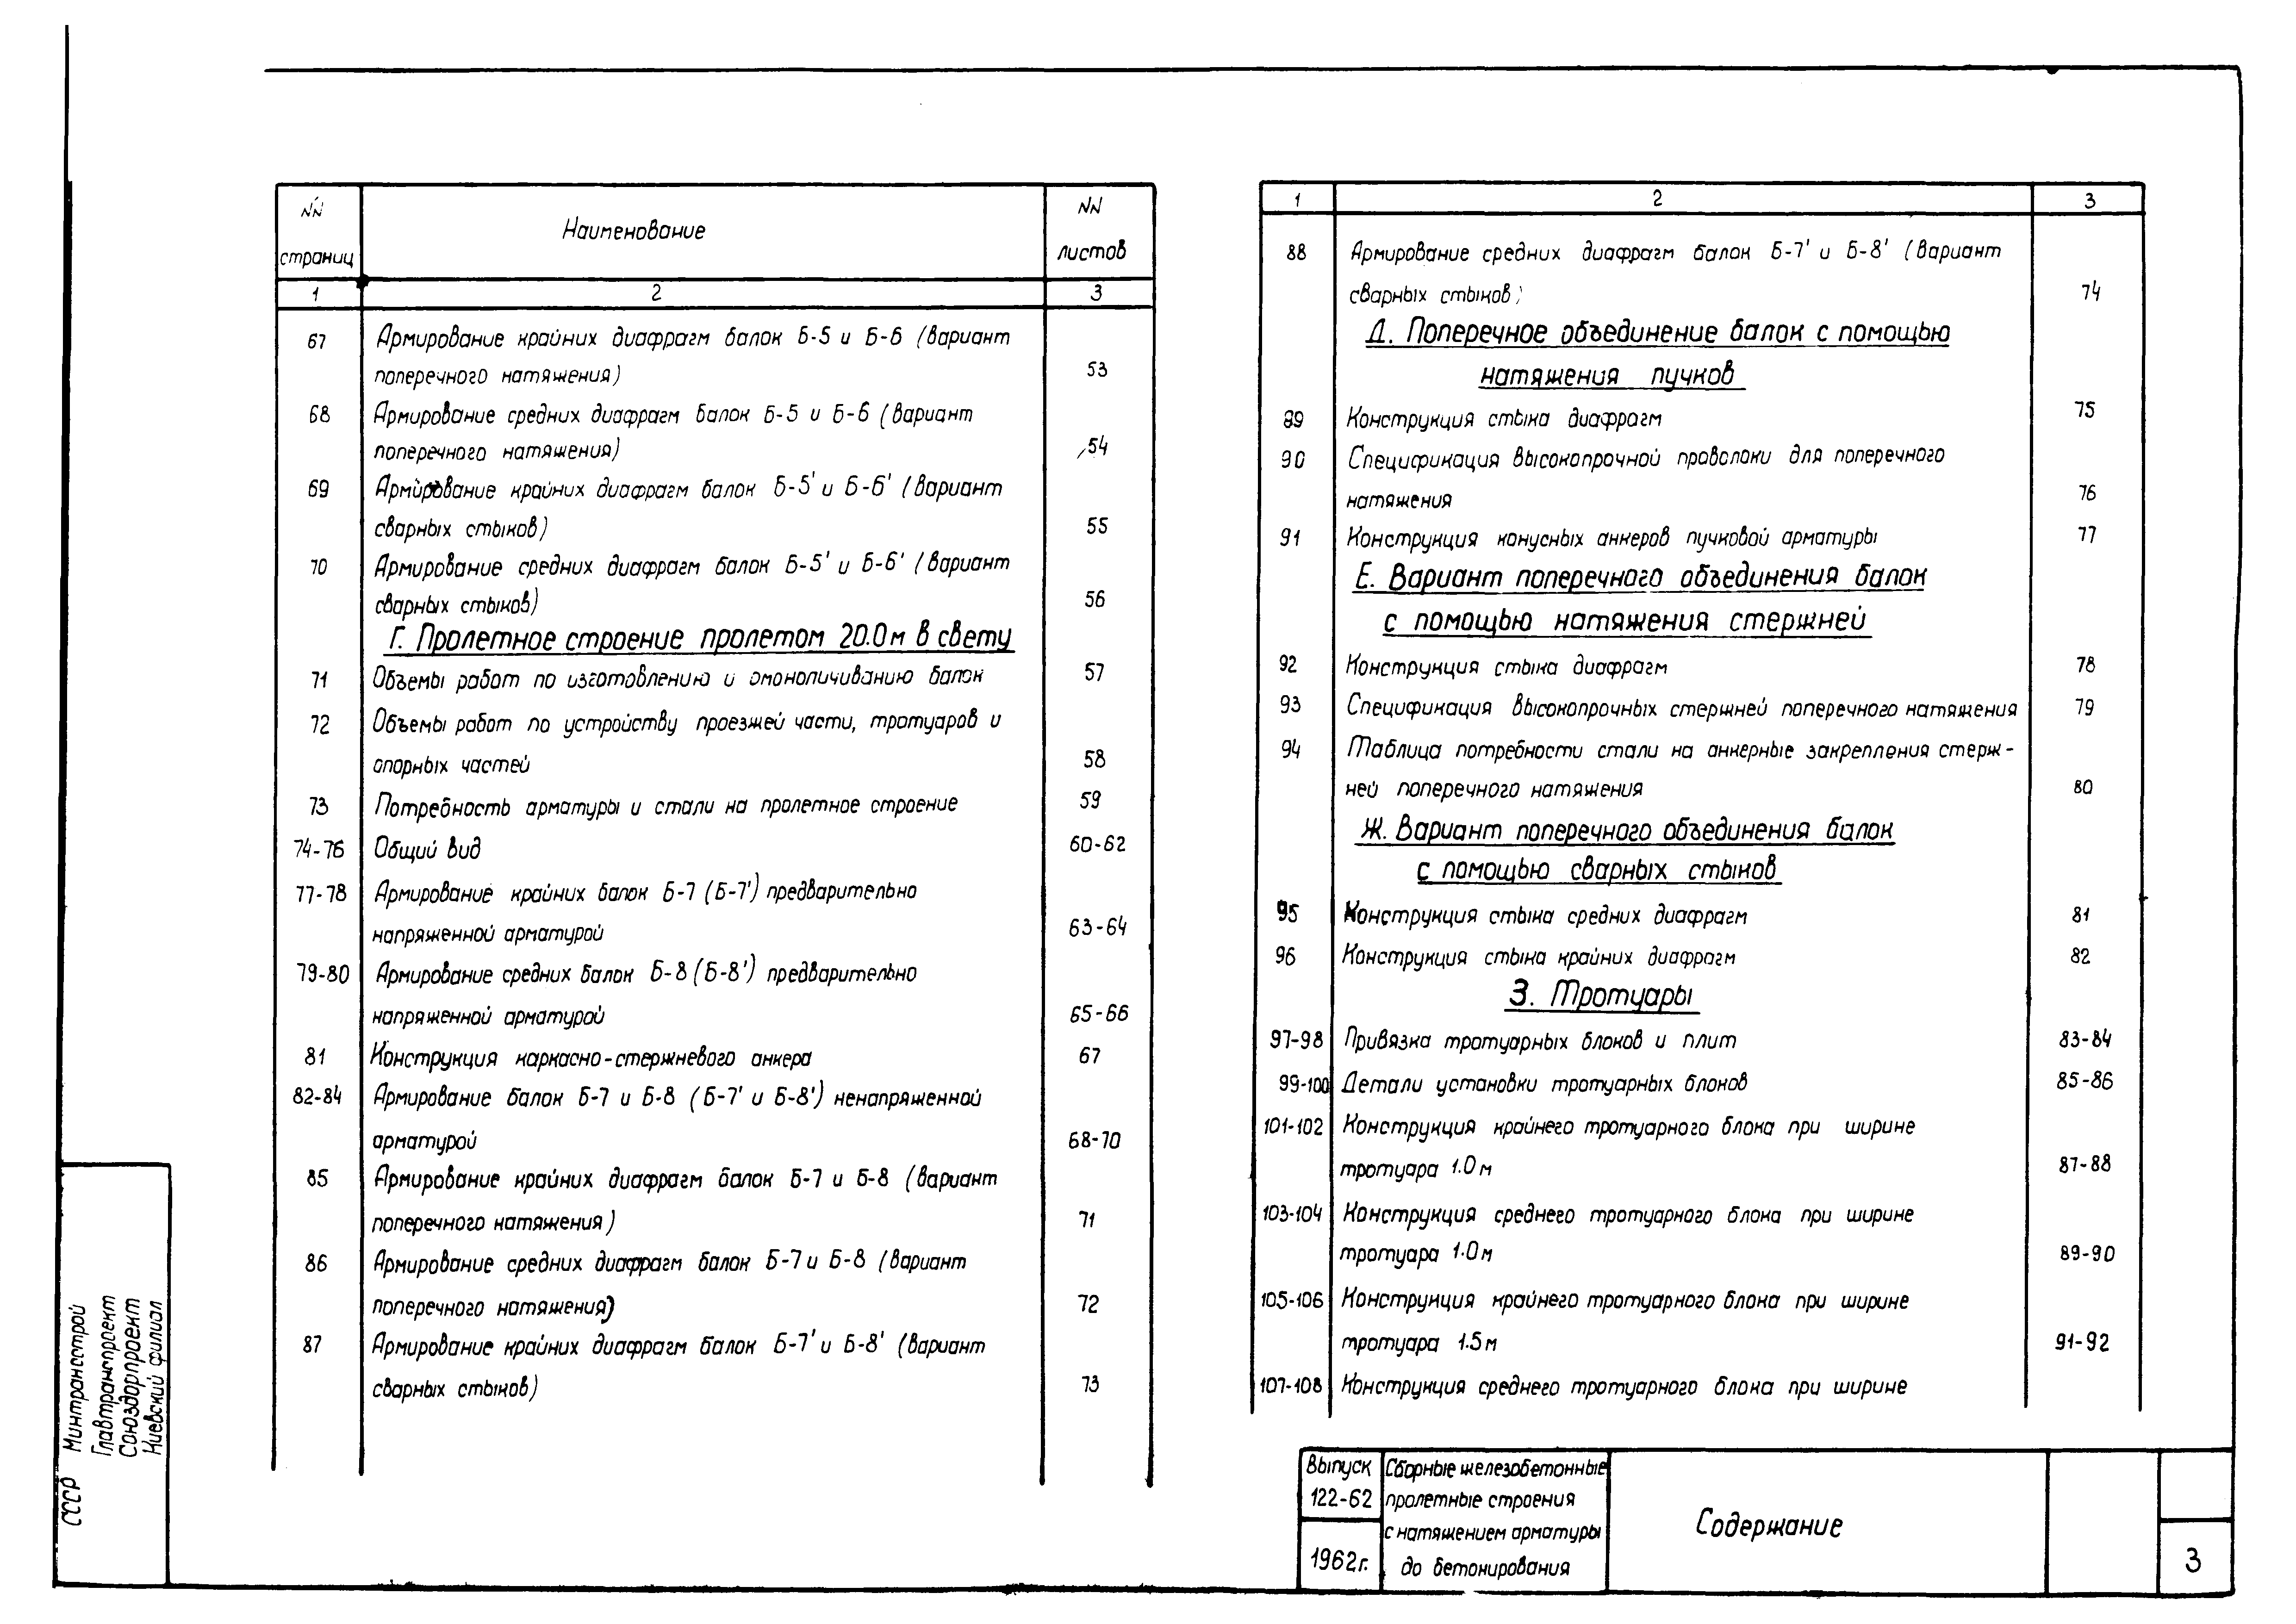 NN
страниц
Наименование
NN
листов
1
2
3
67
Армирование крайних диафрагм балок Б-5 и Б-6 (вариант
поперечного натяжения)
53
68
Армирование средних диафрагм балок Б-5 и Б-6 (вариант
поперечного натяжения)
54
69
Армирование крайних диафрагм балок Б-5' и Б-6' (вариант
сварных стыков)
55
70
Армирование средних диафрагм балок Б-5' и Б-6' (вариант
сварных стыков)
56
Г. Пролетное строение пролетом 20.0м в свету
71
Объемы работ по изготовлению и омоноличиванию балок
57
72
Объемы работ по устройству проезжей части, тротуаров и
опорных частей
58
73
Потребность арматуры и стали на пролетное строение
59
74-76
Общий вид
60-62
77-78
Армирование крайних балок Б-7 (Б-7') предварительно
напряженной арматурой
63-64
79-80
Армирование средних балок Б-8 (Б-8') предварительно
напряженной арматурой
65-66
81
Конструкция каркасно-стержневого анкера
67
82-84
Армирование балок Б-7 и Б-8 (Б-7' и Б-8') ненапряженной
арматурой
68-70
85
Армирование крайних диафрагм балок Б-7 и Б-8 (вариант
поперечного натяжения)
71
86
Армирование средних диафрагм балок Б-7 и Б-8 (вариант
поперечного натяжения)
72
87
Армирование крайних диафрагм балок Б-7' и Б-8' (вариант
сварных стыков)
73
1
2
3
88
Армирование средних диафрагм балок Б-7' и Б-8' (вариант
сварных стыков)
74
Д. Поперечное объединение балок с помощью
натяжения пучков
89
Конструкция стыка диафрагм
75
90
Спецификация высокопрочной проволоки для поперечного
натяжения
76
91
Конструкция конусных анкеров пучковой арматуры
77
Е. Вариант поперечного объединения балок
с помощью натяжения стержней
92
Конструкция стыка диафрагм
78
93
Спецификация высокопрочных стержней поперечного натяжения
79
94
Таблица потребности стали на анкерные закрепления стерж-
ней поперечного натяжения
80
Ж. Вариант поперечного объединения балок
с помощью сварных стыков
95
Конструкция стыка средних диафрагм
81
96
Конструкция стыка крайних диафрагм
82
З. Тротуары
97-98
Привязка тротуарных блоков и плит
83-84
99-100
Детали установки тротуарных блоков
85-86
101-102
Конструкция крайнего тротуарного блока при ширине
тротуара 1.0м
87-88
103-104
Конструкция среднего тротуарного блока при ширине
тротуара 1.0м
89-90
105-106
Конструкция крайнего тротуарного блока при ширине
тротуара 1.5м
91-92
107-108
Конструкция среднего тротуарного блока при ширине
СССР Минтрансстрой
Главтранспроект
Союздорпроект
Киевский филиал
Выпуск
122-62
1962г.
Сборные железобетонные
пролетные строения
с натяжением арматуры
до бетонирования
Содержание
3